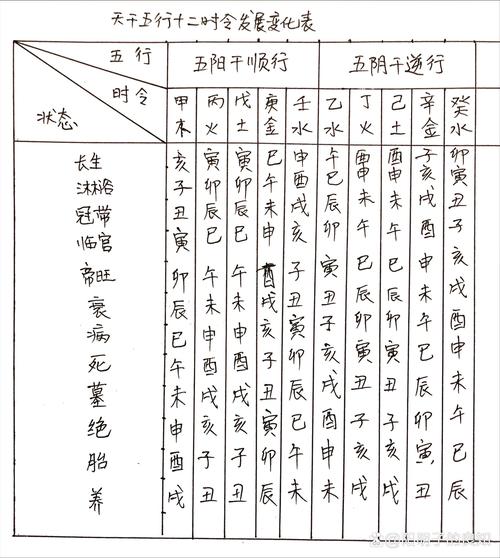 天干五行十二时令发展变化表
五行
时令
状态
五阳干顺行 五阴干逆行
甲木 丙火 戊土 庚金 壬水 乙水 丁火 己土 辛金 癸水
长生 亥 寅 寅 巳 申 午 酉 酉 子 卯
沐浴 子 卯 卯 午 酉 巳 申 申 亥 寅
冠带 丑 辰 辰 未 戌 辰 未 未 戌 丑
临官 寅 巳 巳 申 亥 卯 午 午 酉 子
帝旺 卯 午 午 酉 子 寅 巳 巳 申 亥
衰 辰 未 未 戌 丑 丑 辰 辰 未 戌
病 巳 申 申 亥 寅 子 卯 卯 午 酉
死 午 酉 酉 子 卯 亥 寅 寅 巳 申
墓 未 戌 戌 丑 辰 戌 丑 丑 辰 未
绝 申 亥 亥 寅 巳 酉 子 子 卯 午
胎 酉 子 子 卯 午 申 亥 亥 寅 巳
养 戌 丑 丑 辰 未 未 戌 戌 丑 辰